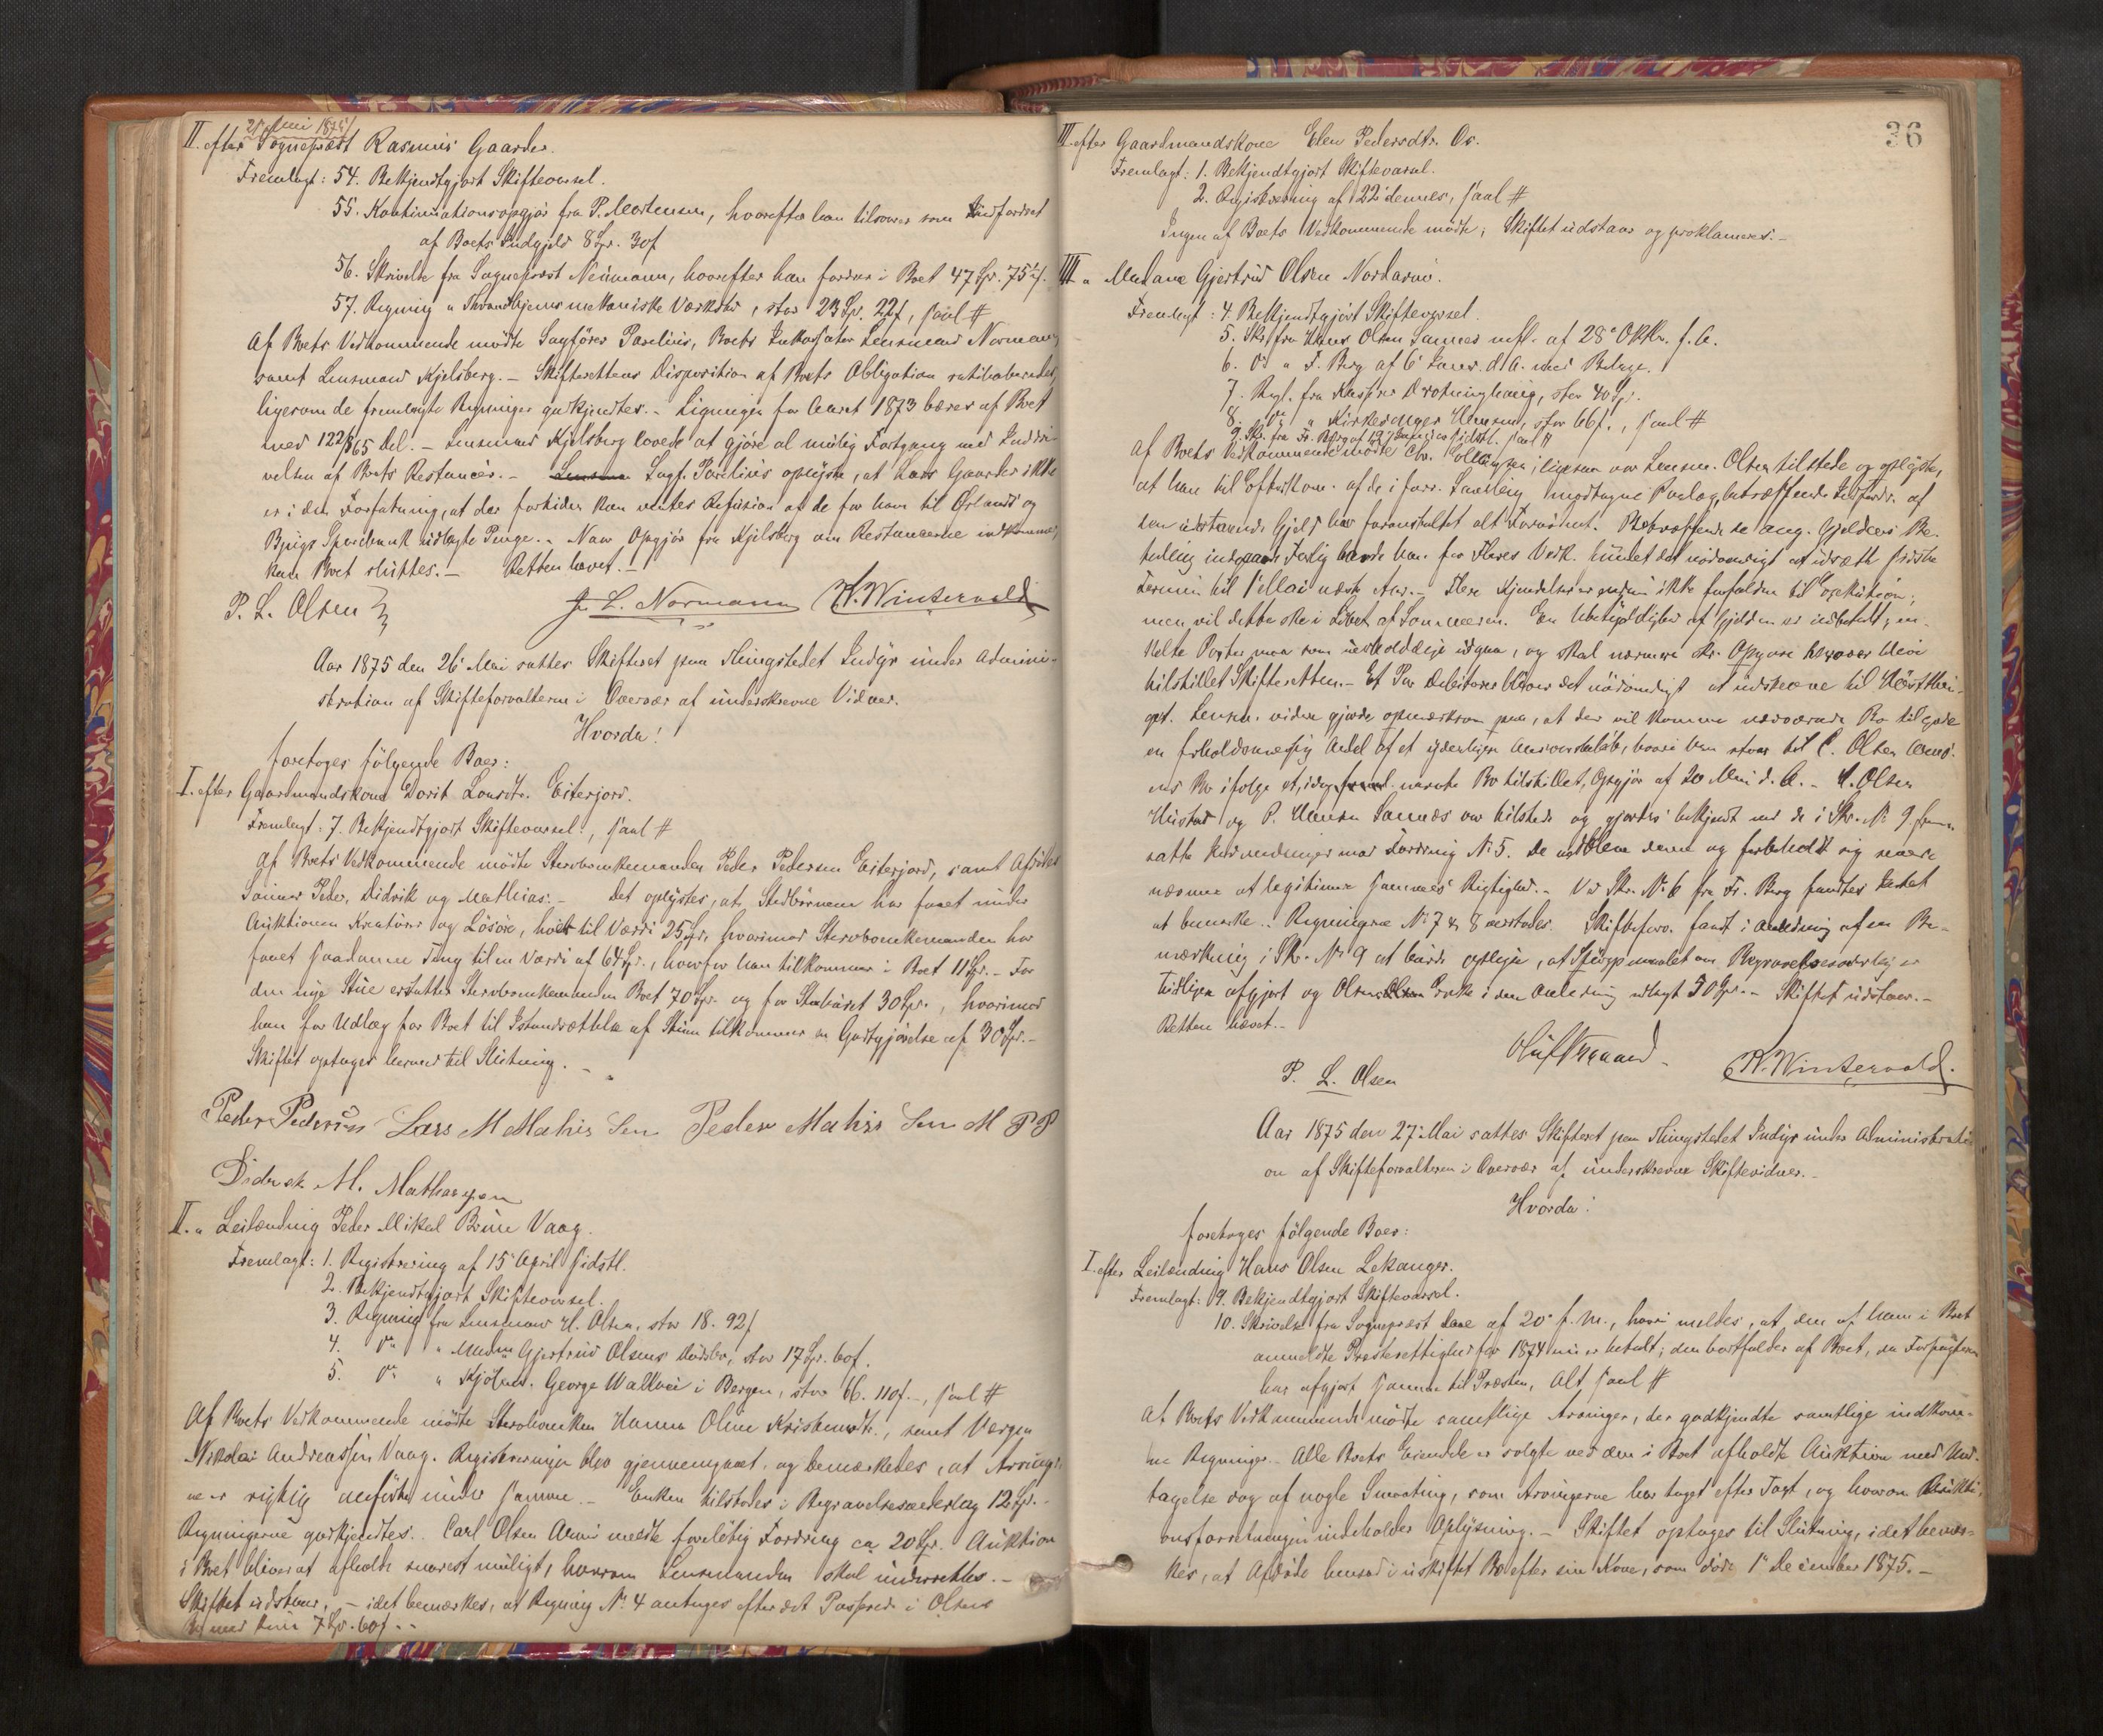 21 Mai 1875
II. efter Sognepræst Rasmus Gaarder.
Fremlagt: 54. Bekjendtgjort Skiftevarsel.
55. Kontinuationsopgjør fra P. Mortensen, hvorefter han tilsvarer som indfordret
af Boets Indgjeld 8 Sp. 30 f
56. Skrivelse fra Sognepræst Neumann, hvorefter han fordrer i Boet 47 Sp. 75 f.
57. Regning " Throndhjems mekaniske Værksted, stor 23 Sp. 22 f, saal #
Af Boets Vedkommende mødte Sagfører Parelius, Boets Inkassator Lensmand Normann
samt Lensmand Kjelsberg. - Skifterettens Disposition af Boets Obligation ratihaberedes,
ligesom de fremlagte Regninger godkjendtes. - Ligningen for Aaret 1873 bæres af Boet
med 122/365 Del. - Lensmand Kjelsberg lovede at gjøre al mulig Fortgang med Inddri-
velsen af Boets Restancer. - Sagf. Parelius oplyste, at Lars Gaarder ikke
er i den Forfatning, at der fortiden kan ventes Refusion af de for ham til Ørlands og
Bjugn Sparebank udlagte Penge. - Naar Opgjør fra Kjelsberg om Restancerne indkommer,
kan Boet sluttes. - Retten hævet. -
P. L. Olsen J. L. Normann K. Wintervold
Aar 1875 den 26 Mai sattes Skifteret paa Thingstedet Indyr under Admini-
stration af Skifteforvalteren i Overvær af underskrevne Vidner.
Hvorda!
foretoges følgende Boer:
I. efter Gaardmandskone Dorit Larsdtr. Eiterjord.
Fremlagt: 7. Bekjendtgjort Skiftevarsel, saal #
Af Boets Vedkommende mødte Stervboenkemanden Peder Pedersen Eiterjord, samt Afdødes
Sønner Peder, Didrik og Mathias. - Det oplystes, at Stedbørnene har faaet under
Auktionen Kreaturer og Løsøre, holdt til Værdi 25 Sp., hvorimod Stervboenkemanden har
faaet saadanne Ting til en Værdi af 64 Sp., hvorfor han tilkommer i Boet 11 Sp. - For
den nye Stue erstatter Stervboenkemanden Boet 70 Sp. og for Stabúret 30 Sp., hvorimod
han for Udlæg for Boet til Istandsættelse af Stuen tilkommer en Godtgjørelse af 30 Sp. -
Skiftet optages hermed til Slutning. -
Peder Pedersen Lars M Mathis Sen Peder Mathis Sen M P P
Didrik M. Mathiasen
II. " Leilænding Peder Mikal Brun Vaag.
Fremlagt: 1. Registrering af 15 April sidstl.
2. Bekjendtgjort Skiftevarsel.
3. Regning fra Lensmand H. Olsen, stor 18. 92 f
4. do " Madm Gjertrud Olsens Dødsbo, stor 17 Sp. 60 f.
5. do " Kjøbmd. George Wallace i Bergen, stor 66. 110 f., saal #
Af Boets Vedkommende mødte Stervboenken Hanna Oline Kristensdtr., samt Værgen
Nikolai Andreassen Vaag. Registreringen blev gjennemgaaet, og bemærkedes, at Arvinger-
ne er rigtig anførte under samme. - Enken tilstodes i Begravelsesvederlag 12 Sp. -
Regningerne godkjendtes. Carl Olsen Arnø meldte foreløbig Fordring ca 20 Sp. Auktion
i Boet bliver at afholde snarest muligt, hvorom Lensmanden skal underrettes. -
Skiftet udstaar, - idet bemærkes, at Regning No 4 antages efter det Passerede i Olsens
Bo med kun 7 Sp. 60 f. -
36
III. efter Gaardmandskone Elen Pedersdtr. Os.
Fremlagt: 1. Bekjendtgjort Skiftevarsel.
2. Registrering af 22 dennes, saal #
Ingen af Boets Vedkommende mødte; Skiftet udstaar og proklameres. -
IIII " Madame Gjertrud Olsen Nordarnø.
Fremlagt: 4. Bekjendtgjort Skiftevarsel.
5. Skr. fra Hans Olsen Sannes mfl. af 28 Oktbr. f. A.
6. Do " F. Berg af 6 Janr. d. A. med Bilage.
7. Regl. fra Kasper Drotninghaug, stor 40 Sp.
8. do " Kirkesanger Hansen, stor 66 f., saal #
9. Skr. fra Fr. Berg af 12 Januar sidstl. saal #
Af Boets Vedkommende mødte ligesom var Lensm. Olsen tilstede og oplyste,
at han til Efterkom. af de i forr. Samling modtagne Paalæg betræffende Indfordr. af
den udstaaende Gjeld har foranstaltet alt Fornødent. Betræffende de ang. Gjeldens Be-
taling indgaaede Forlig havde han for Fleres Vedk. fundet det nødvendigt at udsætte sidste
Termin til 1 Mai næste Aar. - Flere Kjendelser er endnu ikke forfaldne til Exekution,
men vil dette ske i Løbet af Sommeren. En Ubetydelighed af Gjelden er indbetalt; en-
kelte Poster maa som uerholdelige udgaa, og skal nærmere skr. Opgave herover blive
tilstillet Skifteretten. - Et Par Debitorer bliver det nødvendigt at indstevne til Høstthin-
get. Lensm. videre gjorde opmærksom paa, at der vil komme nærværende Bo tilgode
en forholdsmæssig Andel af et yderligere Ansvarsbeløb, hvori han svar til C. Olsen Arnø-
ens Bo ifølge et, i nævnte Bo tilstillet, Opgjør af 20 Mai d. A. - H. Olsen
Hustad og P. Hansen Sannæs var tilstede og gjordes bekjendt med de i Skr. No 9 frem-
satte Indvendinger mod Fordring No 5. De vedblev denne og forbeholdt sig senere
nærmere at legitimere sammes Rigtighed. - Ved Skr. No 6 fra Fr. Berg fandtes Intet
at bemærke. Regningerne No 7 & 8 erstodes. Skifteforv. fandt i Anledning af en Be-
mærkning i Skr. No 9 at burde oplyse, at Spørgsmaalet om Begravelsesvederlag er
tidligere afgjort og Olsens Enke i den Anledning udlagt 50 Sp. - Skiftet udstaar. -
Retten hævet. -
P. L. Olsen K. Wintervold.
Aar 1875 den 27 Mai sattes Skifteret paa Thingstedet Indyr under Administrati-
on af Skifteforvalteren i Overvær af underskrevne Skiftevidner. -
Hvorda!
foretoges følgende Boer:
I. efter Leilænding Hans Olsen Lekanger.
Fremlagt: 9. Bekjendtgjort Skiftevarsel.
10. Skrivelse fra Sognepræst af 20 f. M., hvori meldes, at den af ham i Boet
anmeldte Presterettighed for 1874 nu er betalt; den bortfalder af Boet, da Forpagteren
har afgjort samme til Præsten, Alt saal #
Af Boets Vedkommende mødte samtlige Arvinger, der godkjendte samtlige indkom-
ne Regninger. - Alle Boets Eiendele er solgte ved den i Boet afholdte Auktion med Und-
tagelse dog af nogle Smaating, som Arvingerne har taget efter Taxt, og hvorom Auktio-
onsforretningen indeholder Oplysning. - Skiftet optages til Slutning, idet bemær-
kes, at Afdøde hensad i uskiftet Bo efter sin Kone, som døde 1 December 1875. -